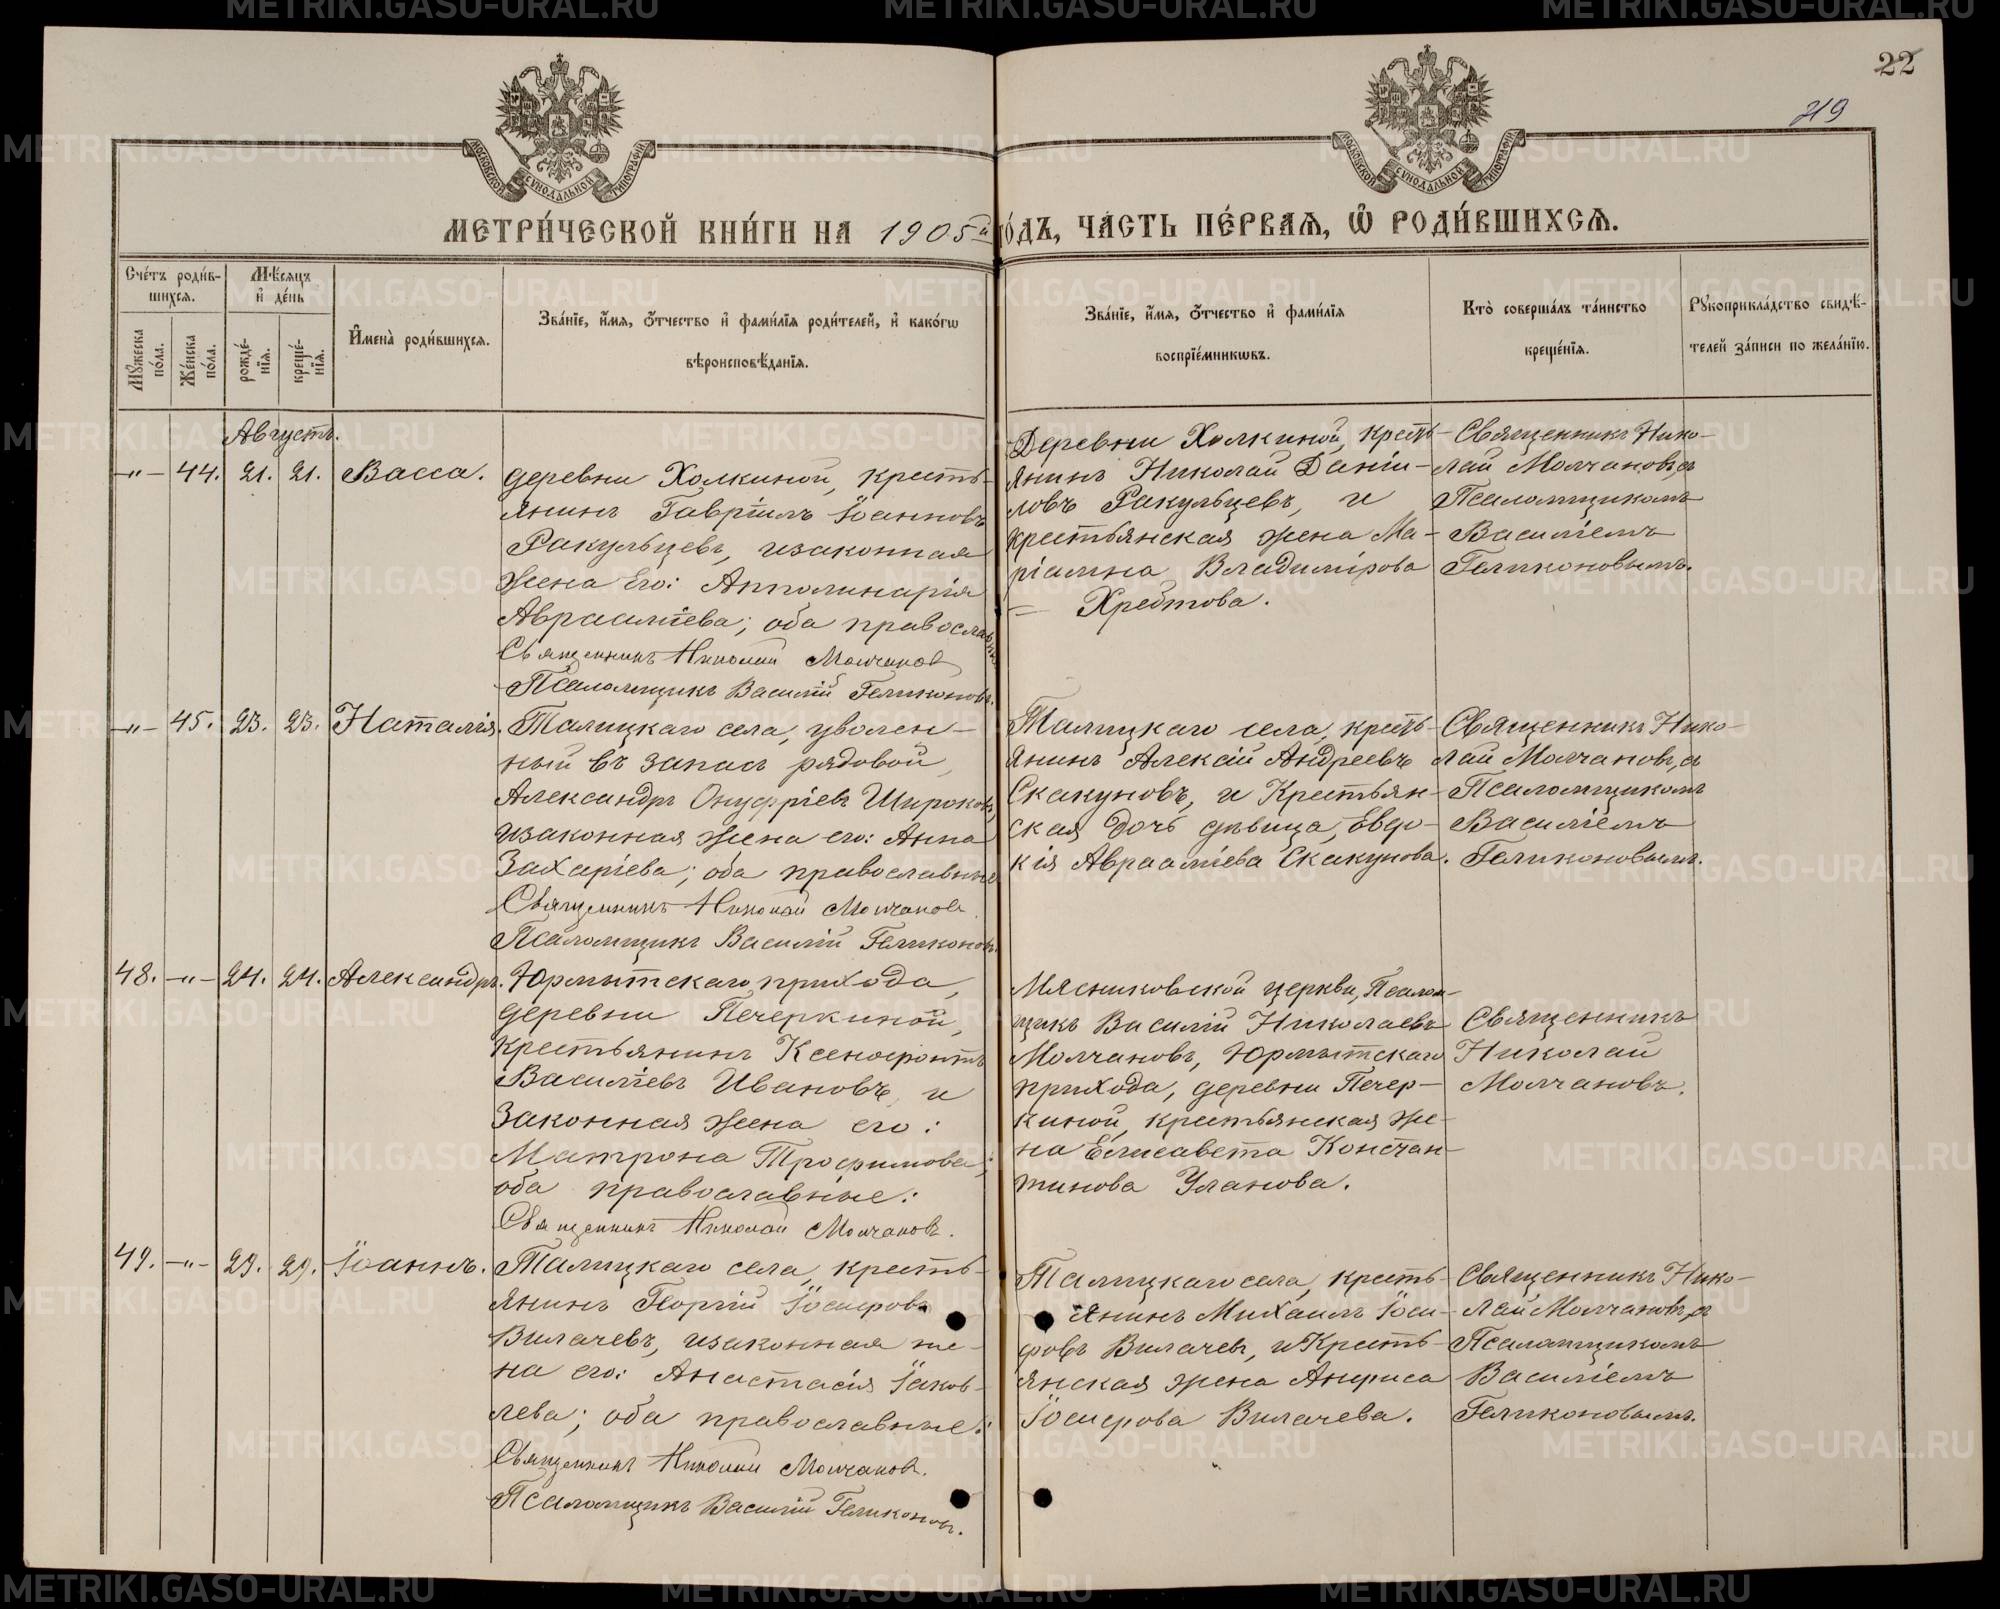 22
219
МОСКОВСКОЙ СУНОДАЛЬНОЙ ТИПОГРАФІИ
МОСКОВСКОЙ СУНОДАЛЬНОЙ ТИПОГРАФІИ
МЕТРИ́ЧЕСКОЙ КНИ́ГИ НА 1905й го́дъ, ЧА́СТЬ ПЕ́РВАѦ, Ѡ РОДИ́ВШИХСѦ.
Сче́тъ роди́в-
шихсѧ.
Мꙋ́жеска по́ла.
Же́нска по́ла.
Мѣ́сѧцъ и де́нь
рожде́-нїѧ.
креще́-нїѧ.
Имена̀ роди́вшихсѧ.
Зва́нїе, и́мѧ, ѻ́тчество и фами́лїѧ роди́телей, и како́гѡ
вѣроисповѣ́данїѧ.
Зва́нїе, и́мѧ, ѻ́тчество и фами́лїѧ
воспрїе́мникѡвъ.
Кто̀ соверша́лъ та́инство
креще́нїѧ.
Рꙋкоприкла́дство свидѣ́-
телей за́писи по жела́нїю.
Августъ.
-"- 44. 21. 21. Васса.
деревни Холкиной, кресть-
янинъ Гавріилъ Іоанновъ
Ракульцевъ, и законная
жена Его: Апполинарія
Авраамiева; оба православ
Священникъ Николай Молчановъ
Псаломщикъ Василій Геликоновъ.
Деревни Холкиной, кресть-
янинъ Николай Даніи-
ловъ Ракульцевъ, и
крестьянская жена Ма-
ріамна Владимірова
— Хребтова.
Священникъ Нико-
лай Молчановъ, съ
Псаломщикомъ
Василіемъ
Геликоновымъ.
-"- 45. 23. 23. Наталія.
Талицкаго села, уволен-
ный въ запасъ рядовой,
Александръ Онуфріевъ Широковъ,
и законная жена его: Анна
Захаріева; оба православные
Священникъ Николай Молчановъ.
Псаломщикъ Василій Геликоновъ.
Талицкаго села, кресть-
янинъ Алексій Андреевъ
Скакуновъ, и Крестьян-
ская дочь дѣвица, Евдо-
кія Авраамiева Скакунова.
Священникъ Нико-
лай Молчановъ, съ
Псаломщикомъ
Василіемъ
Геликоновымъ.
48. -"- 24. 24. Александръ.
Юрмытскаго прихода,
деревни Печеркиной,
крестьянинъ Ксенофонтъ
Василіевъ Ивановъ, и
законная жена его:
Матрона Трофимова;
оба православные:
Священникъ Николай Молчановъ.
Мясниковской церкви, Псалом-
щикъ Василій Николаевъ
Молчановъ, Юрмытскаго
прихода, деревни Печер-
киной, крестьянская же-
на Елисавета Констан-
тинова Уланова.
Священникъ
Николай
Молчановъ.
49. -"- 29. 29. Іоаннъ.
Талицкаго села, кресть-
янинъ Георгій Іосифовъ
Вилачевъ, и законная же-
на его: Анастасія Іаков-
лева; оба православные:
Священникъ Николай Молчановъ.
Псаломщикъ Василій Геликоновъ.
Талицкаго села, кресть-
янинъ Михаилъ Іоси-
фовъ Вилачевъ, и Кресть-
янская жена Анфиса
Іосифова Вилачева.
Священникъ Нико-
лай Молчановъ, съ
Псаломщикомъ
Василіемъ
Геликоновымъ.
METRIKI.GASO-URAL.RU